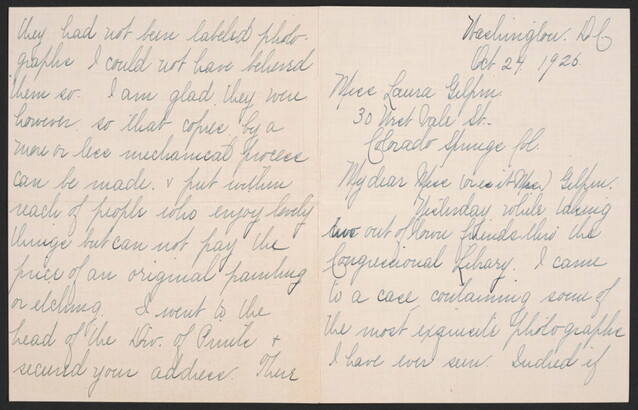 Washington. D C
Oct 24. 1926.
Miss Laura Gilpin
30 West Dale St.
Colorado Springs Col.
My dear Miss (or is it Mrs.) Gilpin.
Yesterday while taking
two out of town friends thru the
Congressional Library. I came
to a case containing some of
the most exquisite photographs
I have ever seen. Indeed if
they had not been labeled photo-
graphs I could not have believed
them so. I am glad they were
however so that copies by a
more or less mechanical process
can be made. & put within
reach of people who enjoy lovely
things but can not pay the
price of an original painting
or etching. I went to the
head of the Div. of Prints &
secured your address. There